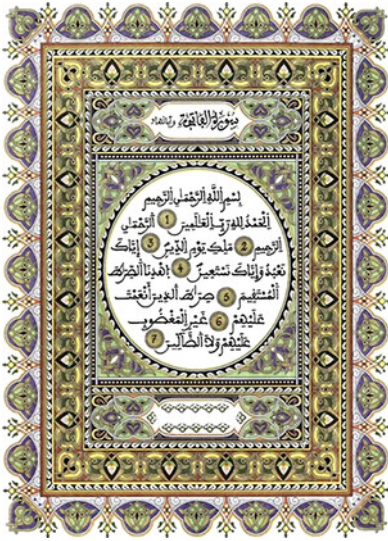 سورة الفاتحة
بِسْمِ اللَّهِ الرَّحْمَٰنِ الرَّحِيمِ
اِلْحَمْدُ لِلهِ رَبِّ الْعَٰلَمِينَ 1 اَلرَّحْمَٰنِ
اِلرَّحِيمِ 2 مَلِكِ يَوْمِ الدِّينِ 3 إِيَّاكَ
نَعْبُدُ وَإِيَّاكَ نَسْتَعِينُ 4 اِهْدِنَا الصِّرَٰطَ
اَلْمُسْتَقِيمَ 5 صِرَٰطَ الَّذِينَ أَنْعَمْتَ
عَلَيْهِمْ 6 غَيْرِ اِلْمَغْضُوبِ
عَلَيْهِمْ وَلَا اَلضَّآلِّينَ 7